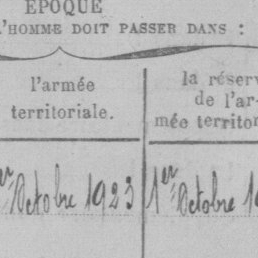 EPOQUE
L'HOMME DOIT PASSER DANS :
l'armée
territoriale.
la réserv
de l'ar-
mée territor
er Octobre 1923
1er Octobre 19